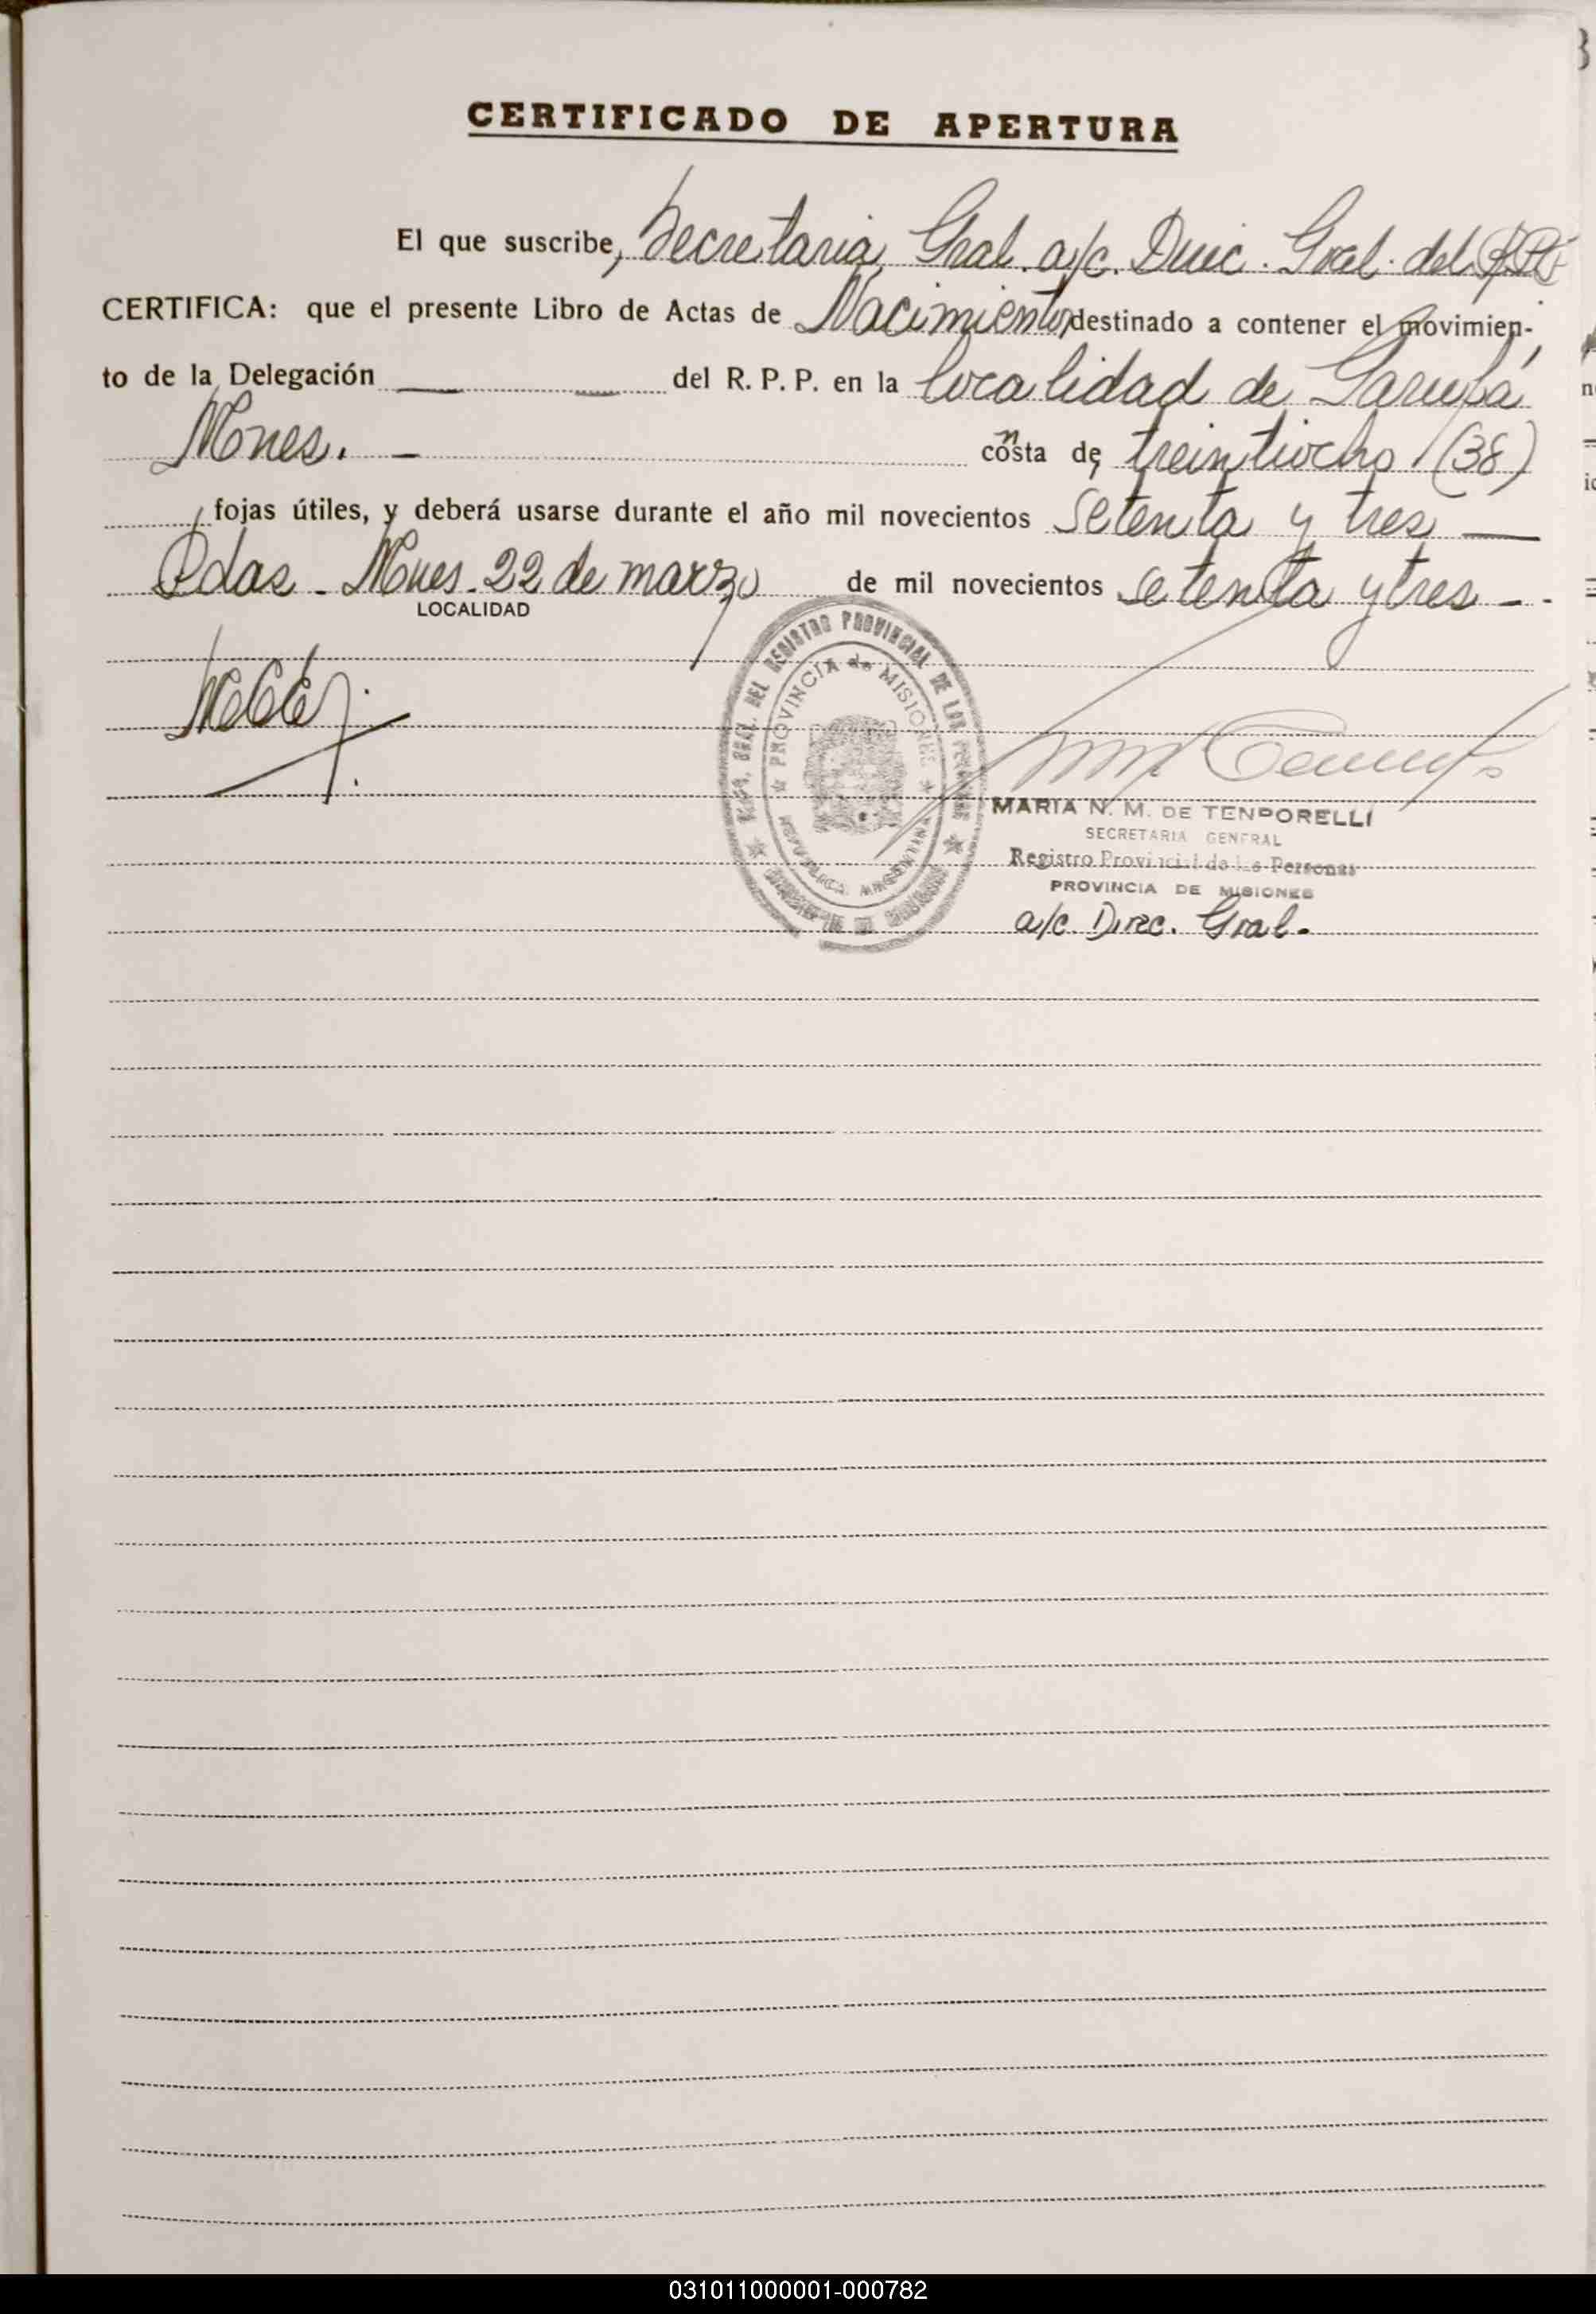 CERTIFICADO DE APERTURA
El que suscribe, Secretaria Gral. a/c. Direc. Gral. del RPP
CERTIFICA: que el presente Libro de Actas de Nacimiento, destinado a contener el movimien-
to de la Delegación del R. P. P. en la localidad de Garupá
Mnes. - consta de, treintiocho (38)
fojas útiles, y deberá usarse durante el año mil novecientos setenta y tres
Pdas - Mnes. 22 de marzo de mil novecientos setenta y tres - .
LOCALIDAD
DEL REGISTRO PROVINCIAL DE LAS
PROVINCIA de MISIONES
REPUBLICA ARGENTINA
MARIA N. M. DE TENPORELLI
SECRETARIA GENERAL
Registro Provincial de las Personas
PROVINCIA DE MISIONES
a/c. Direc. Gral.
031011000001-000782